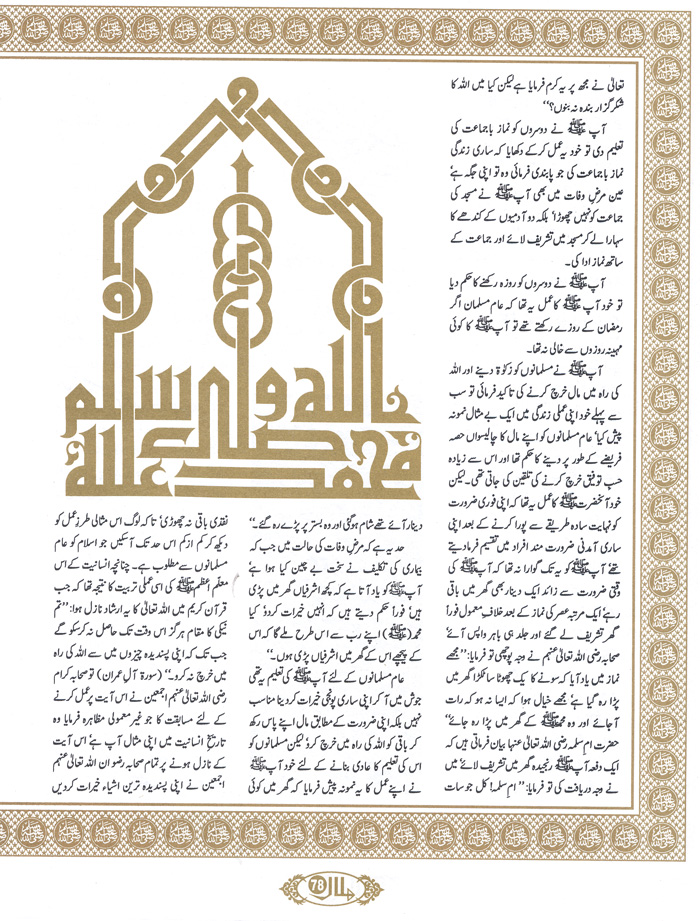 تعالیٰ نے مجھ پر یہ کرم فرمایا ہے لیکن کیا میں اللہ کا
شکر گزار بندہ نہ بنوں؟‘‘
آپ ﷺ نے دوسروں کو نماز باجماعت کی
تعلیم دی تو خود یہ عمل کرکے دکھایا کہ ساری زندگی
نماز باجماعت کی جو پابندی فرمائی وہ تو اپنی جگہ ہے‘
عین مرضِ وفات میں بھی آپ ﷺ نے مسجد کی
جماعت کو نہیں چھوڑا‘ بلکہ دو آدمیوں کے کندھے کا
سہارا لے کر مسجد میں تشریف لائے اور جماعت کے
ساتھ نماز ادا کی۔
آپ ﷺ نے دوسروں کو روزہ رکھنے کا حکم دیا
تو خود آپ ﷺ کا عمل یہ تھا کہ عام مسلمان اگر
رمضان کے روزے رکھتے تھے تو آپ ﷺ کا کوئی
مہینہ روزوں سے خالی نہ تھا۔
آپ ﷺ نے مسلمانوں کو زکوٰۃ دینے اور اللہ
کی راہ میں مال خرچ کرنے کی تاکید فرمائی تو سب
سے پہلے خود اپنی عملی زندگی میں ایک بے مثال نمونہ
پیش کیا‘ عام مسلمانوں کو اپنے مال کا چالیسواں حصہ
فریضے کے طور پر دینے کا حکم تھا اور اس سے زیادہ
حسب توفیق خرچ کرنے کی تلقین کی جاتی تھی۔ لیکن
خود آنحضرت ﷺ کا عمل یہ تھا کہ اپنی فوری ضرورت
کو نہایت سادہ طریقے سے پورا کرنے کے بعد اپنی
ساری آمدنی ضرورت مند افراد میں تقسیم فرما دیتے
تھے‘ آپ ﷺ کو یہ تک گوارا نہ تھا کہ آپ ﷺ کی
وقتی ضرورت سے زائد ایک دینار بھی گھر میں باقی
رہے‘ ایک مرتبہ عصر کی نماز کے بعد خلافِ معمول فوراً
گھر تشریف لے گئے اور جلد ہی باہر واپس آئے‘
صحابہ رضی اللہ تعالیٰ عنہم نے وجہ پوچھی تو فرمایا: ’’مجھے
نماز میں یاد آیا کہ سونے کا ایک چھوٹا سا ٹکڑا گھر میں
پڑا رہ گیا ہے‘ مجھے خیال ہوا کہ ایسا نہ ہو کہ رات
آ جائے اور وہ محمد ﷺ کے گھر میں پڑا رہ جائے‘‘
حضرت ام سلمہ رضی اللہ تعالیٰ عنہا بیان فرماتی ہیں کہ
ایک دفعہ آپ ﷺ رنجیدہ گھر میں تشریف لائے‘ میں
نے وجہ دریافت کی تو فرمایا: ’’ام سلمہ! کل جو سات
دینار آئے تھے شام ہوگئی اور وہ بستر پر پڑے رہ گئے۔‘‘
حد یہ ہے کہ مرضِ وفات کی حالت میں جب کہ
بیماری کی تکلیف نے سخت بے چین کیا ہوا ہے‘
آپ ﷺ کو یاد آتا ہے کہ کچھ اشرفیاں گھر میں پڑی
ہیں‘ فوراً حکم دیتے ہیں کہ انہیں خیرات کردو‘ کیا
محمد (ﷺ) اپنے رب سے اس طرح ملے گا کہ اس
کے پیچھے اس کے گھر میں اشرفیاں پڑی ہوں۔‘‘
عام مسلمانوں کے لئے آپ ﷺ کی تعلیم یہ تھی
جوش میں آ کر اپنی ساری پونجی خیرات کر دینا مناسب
نہیں بلکہ اپنی ضرورت کے مطابق مال اپنے پاس رکھ
کر باقی کو اللہ کی راہ میں خرچ کرو‘ لیکن مسلمانوں کو
اس کی تعلیم کا عادی بنانے کے لئے خود آپ ﷺ
نے اپنے عمل کا یہ نمونہ پیش فرمایا کہ گھر میں کوئی
نقدی باقی نہ چھوڑی‘ تاکہ لوگ اس مثالی طرزِ عمل کو
دیکھ کر کم ازکم اس حد تک آسکیں جو اسلام کو عام
مسلمانوں سے مطلوب ہے۔ چنانچہ انسانیت کے اس
معلمِ اعظم ﷺ کی اسی عملی تربیت کا نتیجہ تھا کہ جب
قرآن کریم میں اللہ تعالیٰ کا یہ ارشاد نازل ہوا: ’’تم
نیکی کا مقام ہرگز اس وقت تک حاصل نہ کرسکو گے
جب تک کہ اپنی پسندیدہ چیزوں میں سے اللہ کی راہ
میں خرچ نہ کرو۔‘‘ (سورۃ آل عمران) تو صحابہ کرام
رضی اللہ تعالیٰ عنہم اجمعین نے اس آیت پر عمل کرنے
کے لئے مسابقت کا جو غیر معمولی مظاہرہ فرمایا وہ
تاریخ انسانیت میں اپنی مثال آپ ہے‘ اس آیت
کے نازل ہونے پر تمام صحابہ رضوان اللہ تعالیٰ عنہم
اجمعین نے اپنی پسندیدہ ترین اشیاء خیرات کردیں
ہلال 78